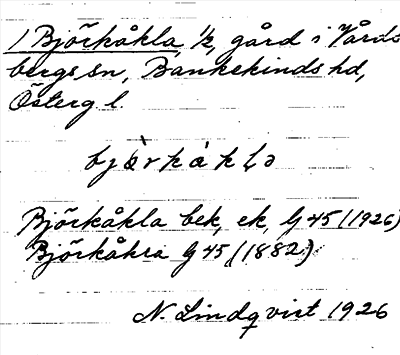 1 Björkåkla, 1/2, gård i Vårds
bergs sn, Bankekinds hd,
Österg l.
bjo̯rkàkḷə
Björkåkla bek, ek, G 45 (1926)
Björkåkra G 45 (1882)
N. Lindqvist 1926